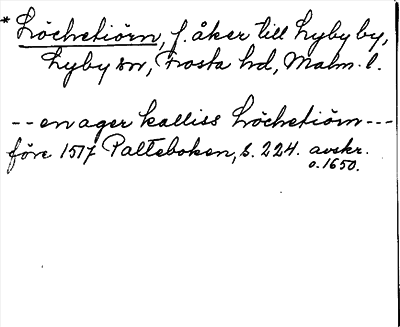 * Löchetiörn, f. åker till Lyby by,
Lyby sn, Frosta hd, Malm. l.
-- en ager kalliss Löchetiörn ---
före 1517 Palteboken, s. 224. avskr.
o. 1650.